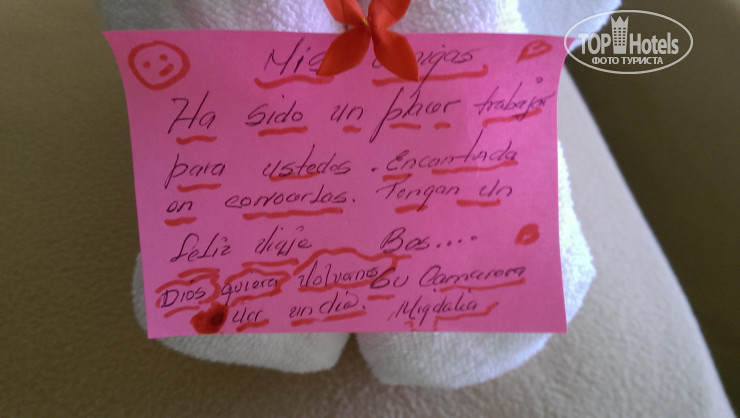 TOP Hotels
ФОТО ТУРИСТА
Mis amigas
Ha sido un placer trabajar
para ustedes. Encantada
en conocerlas. Tengan un
feliz viaje Bes....
Dios quiera volvanos Su Camarera
Ver un día. Migdalia